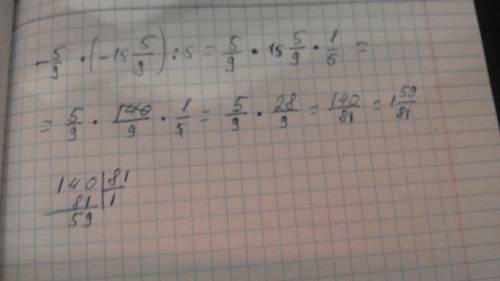 -5/9 · (-15 5/9) : 5 = 5/9 · 15 5/9 · 1/5 =
= 5/9 · 140/9 · 1/5 = 5/9 · 28/9 = 140/81 = 1 59/81
140 | 81
81 | 1
59